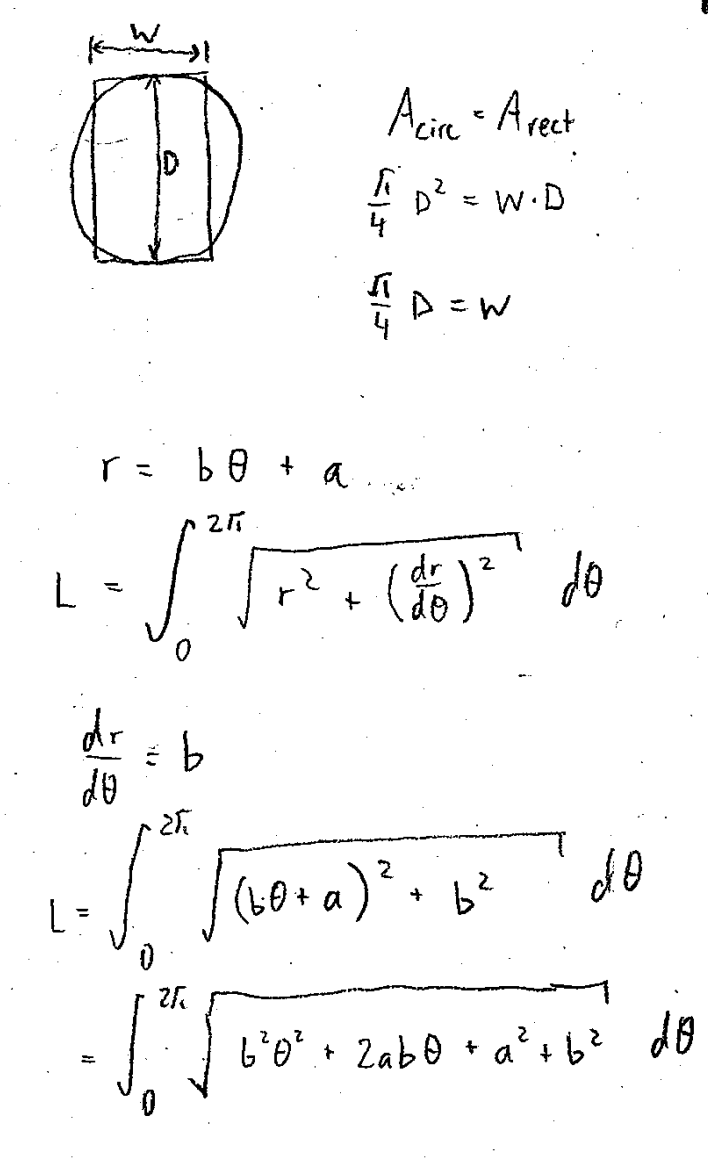 W
D
A circ = A rect
π/4 D² = W·D
π/4 D = W
r = bθ + a
L = ∫₀^2π √(r² + (dr/dθ)²) dθ
dr/dθ = b
L = ∫₀^2π √((bθ + a)² + b²) dθ
= ∫₀^2π √(b²θ² + 2abθ + a² + b²) dθ